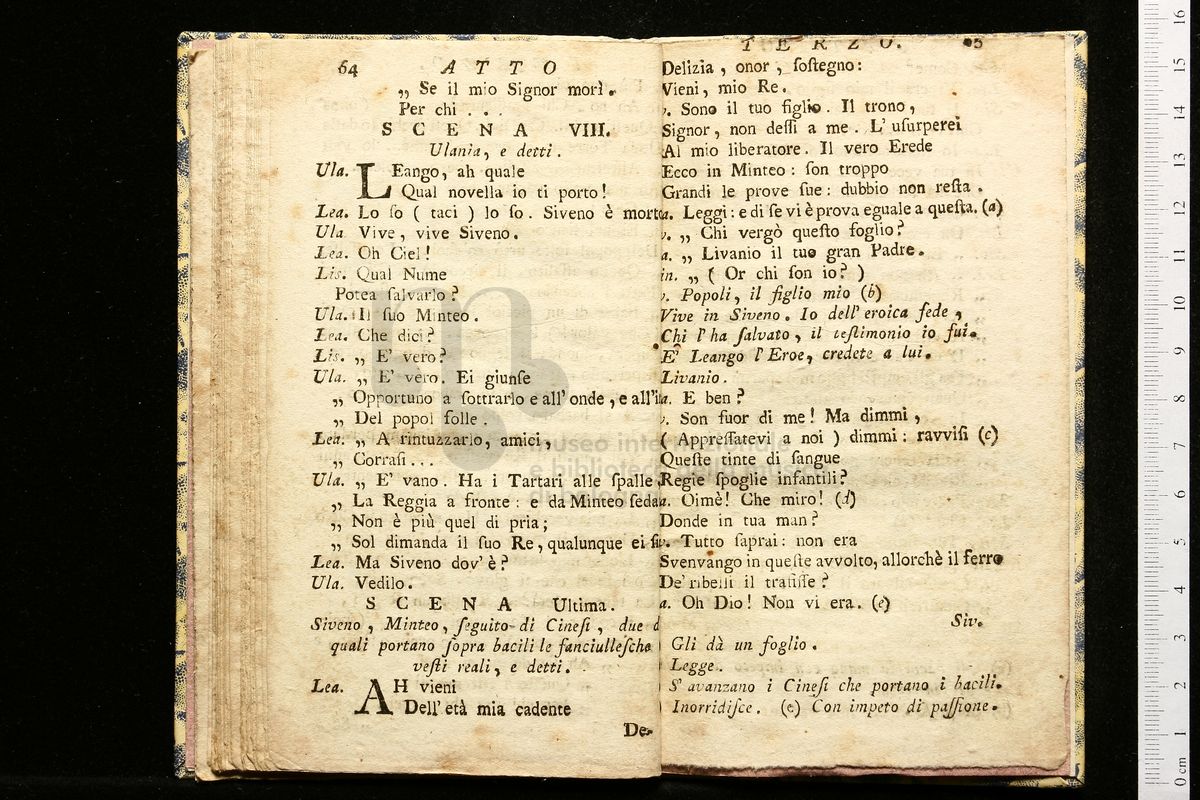 64 ATTO
„ Se il mio Signor morì.
Per chi . . .
SCENA VIII.
Ulania, e detti.
Ula. LEango, ah quale
Qual novella io ti porto!
Lea. Lo so ( taci ) lo so. Siveno è morto
Ula. Vive, vive Siveno.
Lea. Oh Ciel!
Lis. Qual Nume
Potea salvarlo?
Ula. Il suo Minteo.
Lea. Che dici?
Lis. „ E' vero?
Ula. „ E' vero. Ei giunse
„ Opportuno a sottrarlo e all' onde, e all'i
„ Del popol folle.
Lea. „ A rintuzzarlo, amici,
„ Corrasi...
Ula. „ E' vano. Ha i Tartari alle spalle,
„ La Reggia a fronte: e da Minteo seda
„ Non è più quel di pria;
„ Sol dimanda il suo Re, qualunque ei si
Lea. Ma Siveno dov' è?
Ula. Vedilo.
SCENA Ultima.
Siveno, Minteo, seguito di Cinesi, due d
quali portano sopra bacili le fanciullesche
vesti reali, e detti.
Lea. AH vieni
Dell' età mia cadente
De-
TERZO. 65
Delizia, onor, sostegno:
Vieni, mio Re.
v. Sono il tuo figlio. Il trono,
Signor, non dessi a me. L' usurperei
Al mio liberatore. Il vero Erede
Ecco in Minteo: son troppo
Grandi le prove sue: dubbio non resta.
a. Leggi: e di se vi è prova eguale a questa. (a)
v. „ Chi vergò questo foglio?
a. „ Livanio il tuo gran Padre.
in. „ ( Or chi son io? )
v. Popoli, il figlio mio (b)
Vive in Siveno. Io dell' eroica fede,
Chi l' ha salvato, il testimonio io fui.
E' Leango l' Eroe, credete a lui.
Livanio.
a. E ben?
v. Son fuor di me! Ma dimmi,
( Appressatevi a noi ) dimmi: ravvisi (c)
Queste tinte di sangue
Regie spoglie infantili?
a. Oimè! Che miro! (d)
Donde in tua man?
v. Tutto saprai: non era
Svenvango in queste avvolto, allorchè il ferro
De' ribelli il trafisse?
a. Oh Dio! Non vi era. (e)
Siv.
Gli dà un foglio.
Legge.
S' avanzano i Cinesi che portano i bacili.
Inorridisce. (e) Con impeto di passione.
museo internazionale
e biblioteca della musica
di bologna